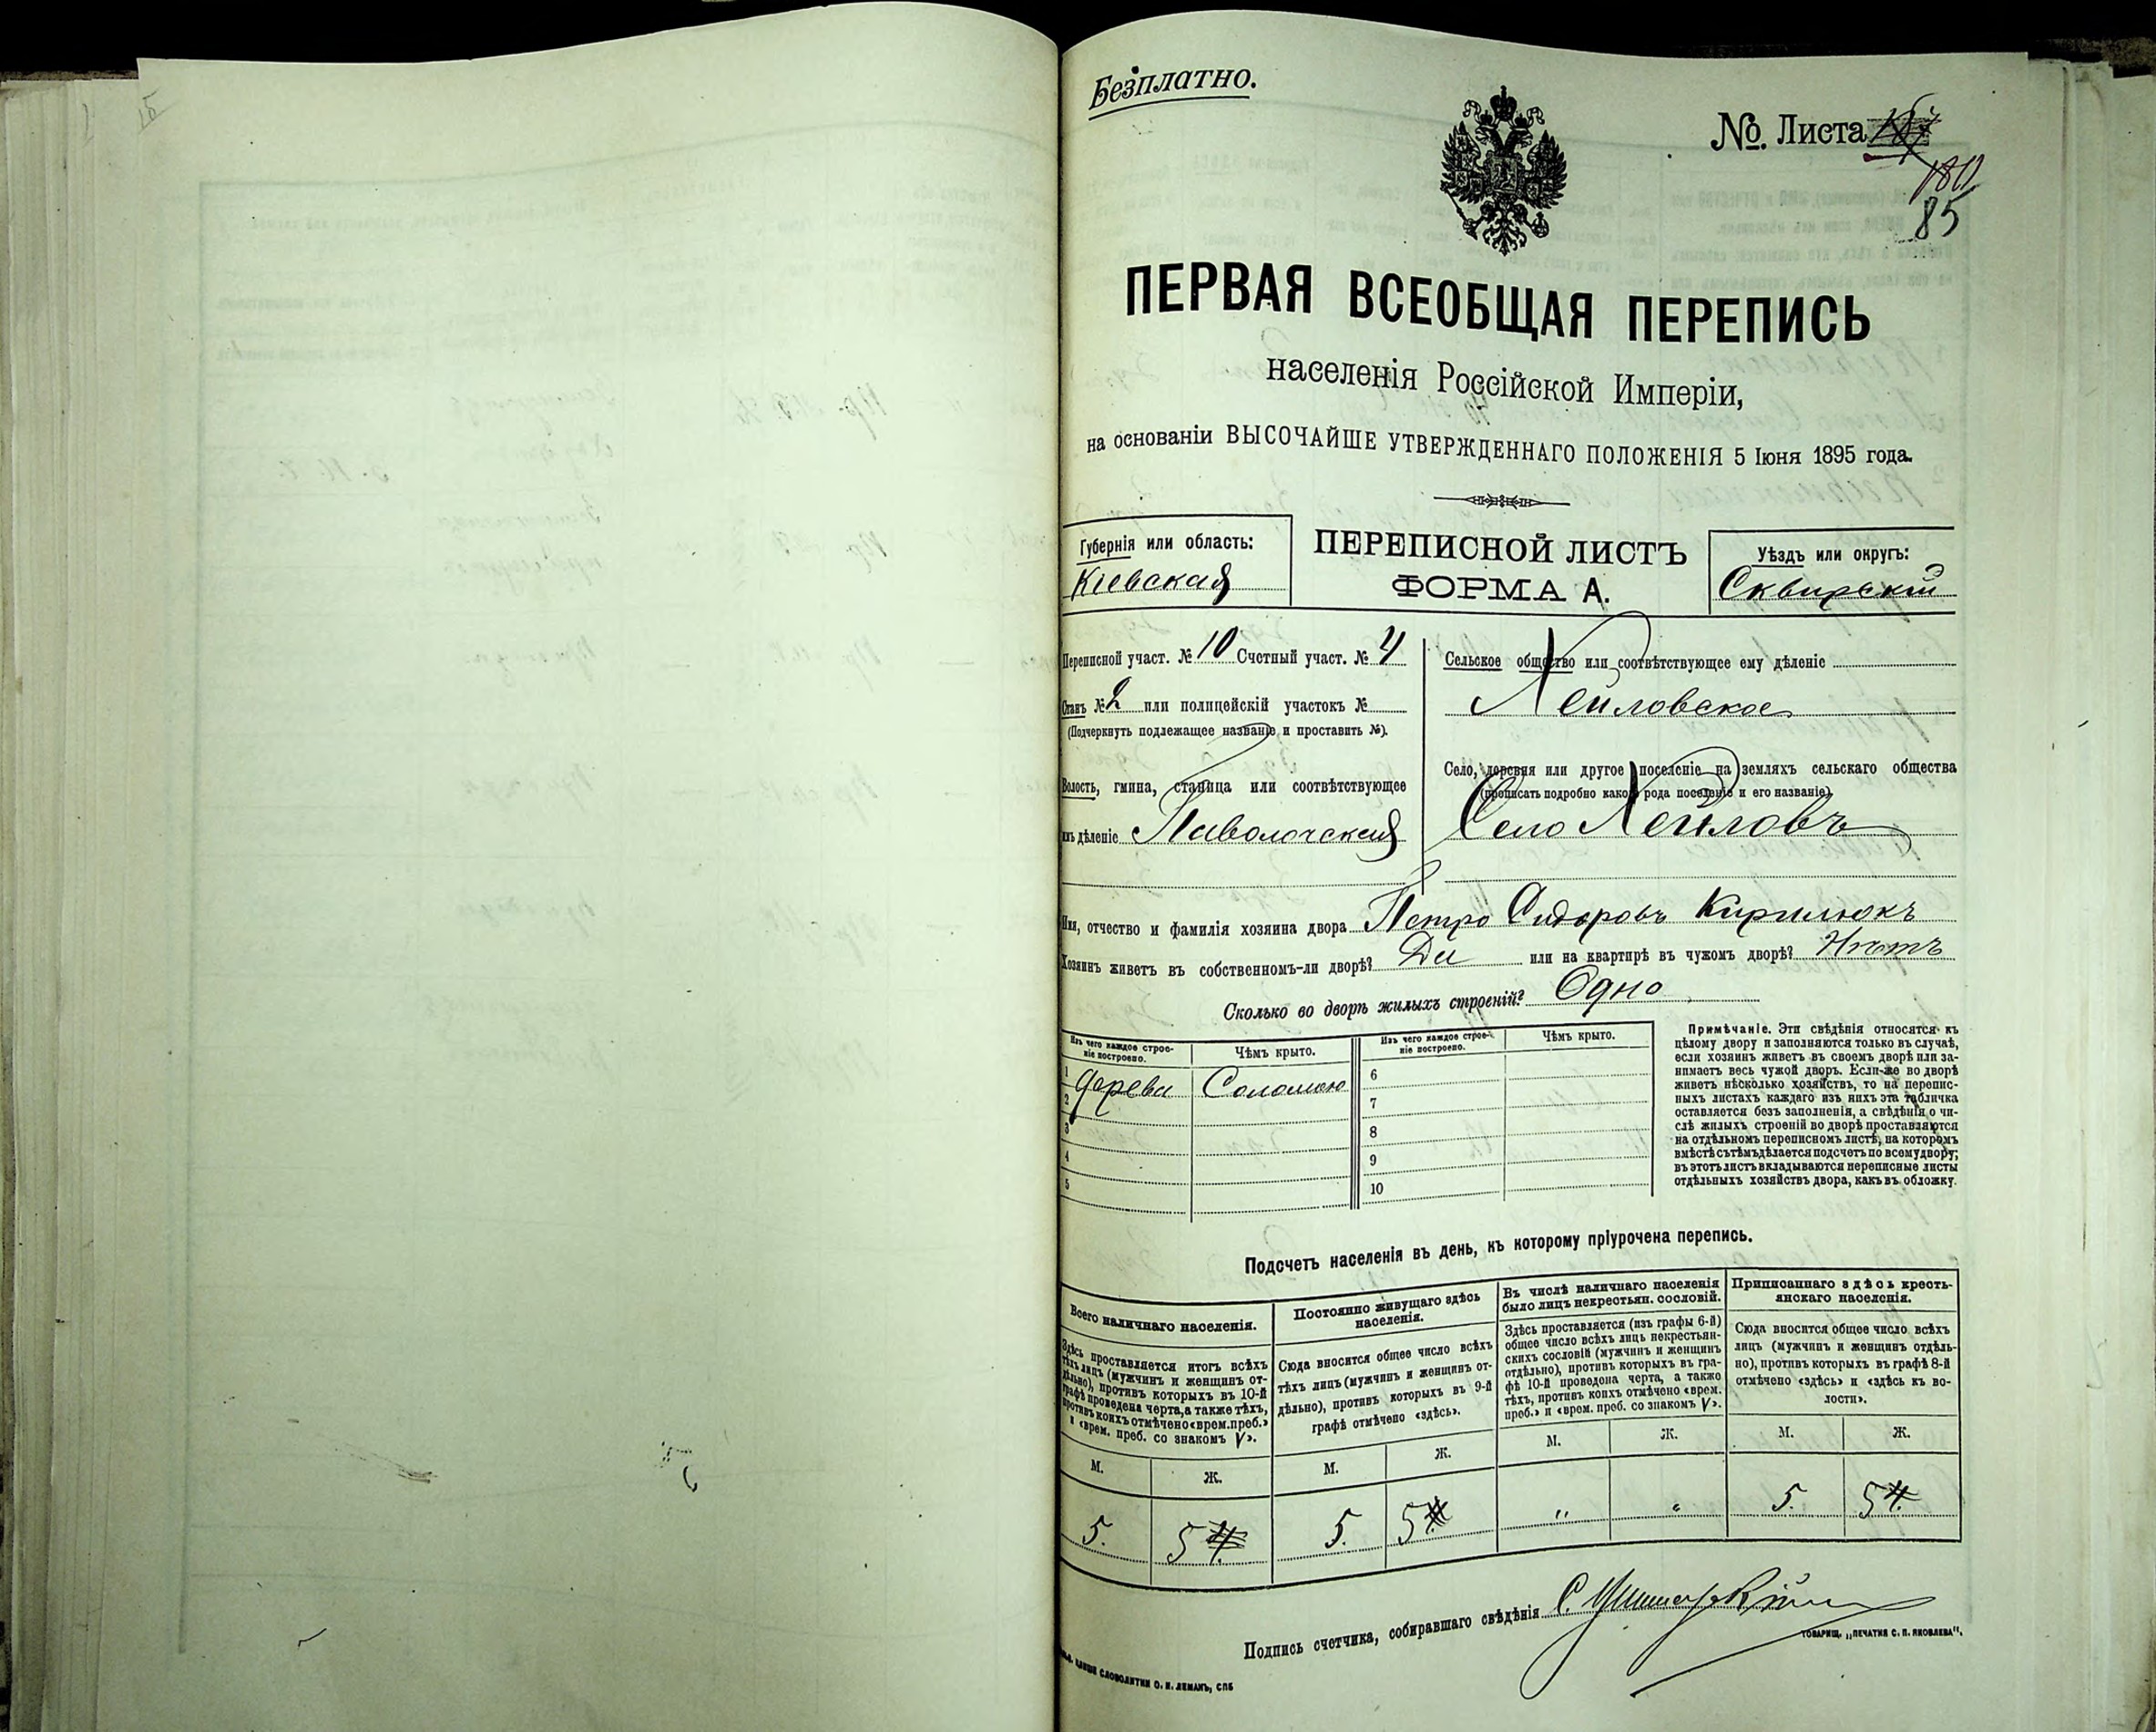 Безплатно.
№. Листа
180
85
ПЕРВАЯ ВСЕОБЩАЯ ПЕРЕПИСЬ
населенія Россійской Имперіи,
на основаніи ВЫСОЧАЙШЕ УТВЕРЖДЕННАГО ПОЛОЖЕНІЯ 5 Іюня 1895 года.
Губернія или область:
Кіевская
ПЕРЕПИСНОЙ ЛИСТЪ
ФОРМА А.
Уѣздъ или округъ:
Сквирскій
Переписной участ. № 10 Счетный участ. № 4
Станъ № 2 или полицейскій участокъ №
(Подчеркнуть подлежащее названіе и проставить №).
Волость, гмина, станица или соотвѣтствующее
имъ дѣленіе Паволочская
Сельское общество или соотвѣтствующее ему дѣленіе
Хейловское
Село, деревня или другое поселеніе на земляхъ сельскаго общества
(прописать подробно какого рода поселеніе и его названіе)
Село Хейловъ
Имя, отчество и фамилія хозяина двора Петро Сидоровъ Кирилюкъ
Хозяинъ живетъ въ собственномъ-ли дворѣ? Да или на квартирѣ въ чужомъ дворѣ? Нѣтъ
Сколько во дворѣ жилыхъ строеній? Одно
Изъ чего каждое строе-
ніе построено.
Чѣмъ крыто.
Изъ чего каждое строе-
ніе построено.
Чѣмъ крыто.
1 дерева Соломою
2
3
4
5
6
7
8
9
10
Примѣчаніе. Эти свѣдѣнія относятся къ
цѣлому двору и заполняются только въ случаѣ,
если хозяинъ живетъ въ своемъ дворѣ или за-
нимаетъ весь чужой дворъ. Если-же во дворѣ
живетъ нѣсколько хозяйствъ, то на перепис-
ныхъ листахъ каждаго изъ нихъ эта табличка
оставляется безъ заполненія, а свѣдѣнія о чи-
слѣ жилыхъ строеній во дворѣ проставляются
на отдѣльномъ переписномъ листѣ, на которомъ
вмѣстѣ съ тѣмъ дѣлается подсчетъ по всему двору;
въ этотъ листъ вкладываются переписные листы
отдѣльныхъ хозяйствъ двора, какъ въ обложку.
Подсчетъ населенія въ день, къ которому пріурочена перепись.
Всего наличнаго населенія.
Здѣсь проставляется итогъ всѣхъ
тѣхъ лицъ (мужчинъ и женщинъ от-
дѣльно), противъ которыхъ въ 10-й
графѣ проведена черта, а также тѣхъ,
противъ коихъ отмѣчено «врем. преб.»
и «врем. преб. со знакомъ V».
М. Ж.
5. 5
Постоянно живущаго здѣсь
населенія.
Сюда вносится общее число всѣхъ
тѣхъ лицъ (мужчинъ и женщинъ от-
дѣльно), противъ которыхъ въ 9-й
графѣ отмѣчено «здѣсь».
М. Ж.
5. 5
Въ числѣ наличнаго населенія
было лицъ некрестьян. сословій.
Здѣсь проставляется (изъ графы 6-й)
общее число всѣхъ лицъ некрестьян-
скихъ сословій (мужчинъ и женщинъ
отдѣльно), противъ которыхъ въ гра-
фѣ 10-й проведена черта, а также
тѣхъ, противъ коихъ отмѣчено «врем.
преб.» и «врем. преб. со знакомъ V».
М. Ж.
" "
Приписаннаго здѣсь кресть-
янскаго населенія.
Сюда вносится общее число всѣхъ
лицъ (мужчинъ и женщинъ отдѣль-
но), противъ которыхъ въ графѣ 8-й
отмѣчено «здѣсь» и «здѣсь къ во-
лости».
М. Ж.
5. 5
Подпись счетчика, собиравшаго свѣдѣнія
СЛОВОЛИТНИ О. И. ЛЕМАНЪ, СПБ
ТОВАРИЩ. „ПЕЧАТНЯ С. П. ЯКОВЛЕВА".